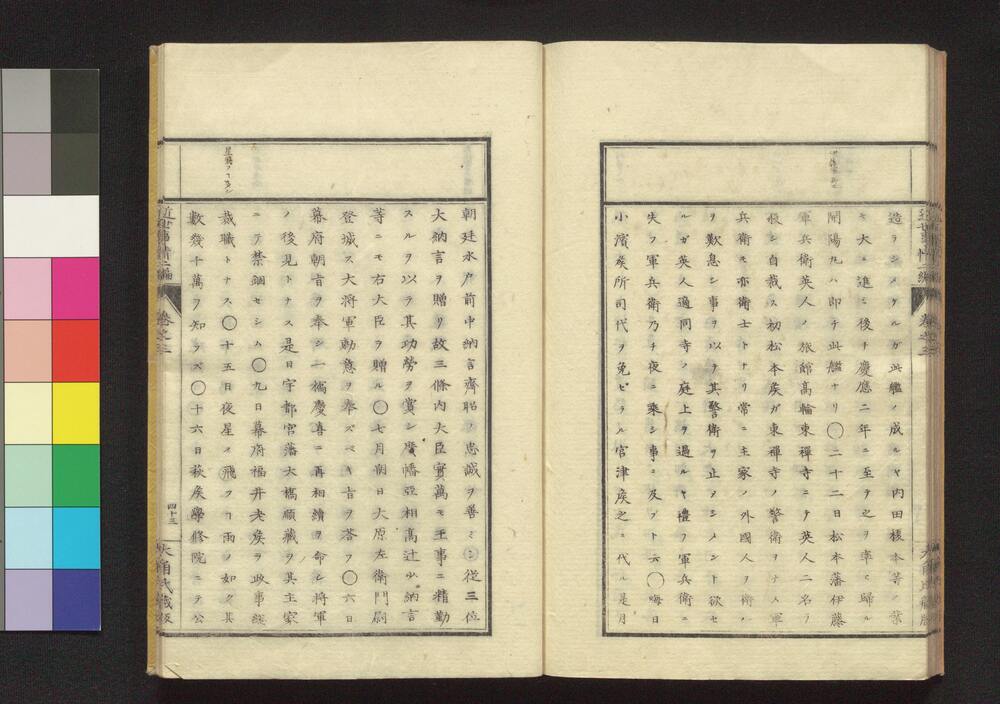 造ラシメケルガ此艦ノ成ルヤ内田榎本等ノ業
モ大ニ進ミ後チ慶應二年ニ至リ之ヲ率ヒ歸ル
開陽丸ハ即チ此艦ナリ〇二十二日松本藩伊藤
軍兵衛英人ノ旅館高輪東禪寺ニテ英人二名ヲ
殺シ自裁ス初松本矦ガ東禪寺ノ警衛ヲナス軍
兵衛モ亦衛士トナリ常ニ主家ノ外國人ヲ衛ル
ヲ歎息シ事ヲ以テ其警衛ヲ止メシメント欲セ
ルガ英人適同寺ノ庭上ヲ過ルヤ禮ヲ軍兵衛ニ
失フ軍兵衛乃チ夜ニ乘シ事ニ及ブト云〇晦日
小濱矦所司代ヲ免ゼラル宮津矦之ニ代ル是月
朝廷水戸前中納言齊昭ノ忠誠ヲ善ミシ從三位
大納言ヲ贈リ故三條内大臣實萬モ王事ニ精勤
スルヲ以テ其功勞ヲ賞シ廣幡亞相高辻少納言
等ニモ右大臣ヲ贈ル〇七月朔日大原左衛門尉
登城ス大將軍勅意ヲ奉ズベキ旨ヲ答フ〇六日
幕府朝旨ヲ奉シ一橋慶喜ニ再相續ヲ命シ將軍
ノ後見トナス是日宇都宮藩大橋順藏ヲ其主家
ニテ禁錮セシム〇九日幕府福井老矦ヲ政事總
裁職トナス〇十五日夜星ノ飛フヿ雨ノ如ク其
數幾千萬ヲ知ラズ〇十六日萩矦學修院ニテ公
近世事情二編
卷之三
四十三
大角氏藏版